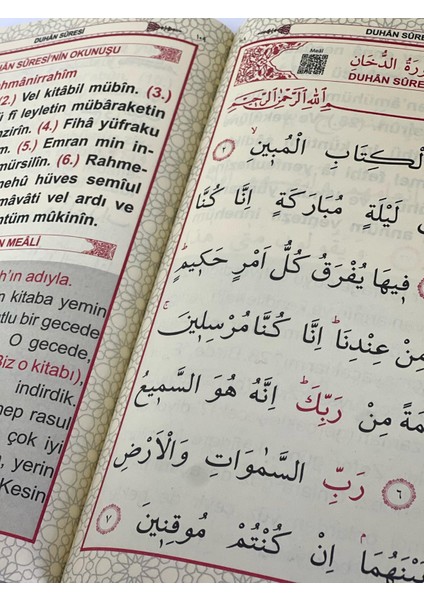 DUHÂN SÛRESİ
١٠٩
HÂN SÛRESİ'NİN OKUNUŞU
hmânirrahîm
2.) Vel kitâbil mübîn. (3.)
û fî leyletin mübâraketin
nzirîn. (4.) Fîhâ yüfraku
m. (5.) Emran min in-
mürsilîn. (6.) Rahme-
nehû hüves semîul
mâvâti vel ardı ve
ntüm mûkinîn.
N MEÂLİ
h'ın adıyla.
n kitaba yemin
tlu bir gecede
O gecede,
Biz o kitabı),
indirdik.
hep rasul
çok iyi
, yerin
Kesin
DUHÂN SÛRE
Meâl
سُورَةُ الدُّخَانِ
DUHÂN SÛRE
الْكِتَابِ الْمُبِينِ
لَيْلَةٍ مُبَارَكَةٍ اِنَّا كُنَّا
فِيهَا يُفْرَقُ كُلُّ اَمْرٍ حَكِيمٍ
مِنْ عِنْدِنَا اِنَّا كُنَّا مُرْسِلِينَ
مِنْ رَبِّكَ اِنَّهُ هُوَ السَّمِيعُ
٦ رَبِّ السَّمٰوَاتِ وَالْاَرْضِ
اِنْ كُنْتُمْ مُوقِنِينَ ٧